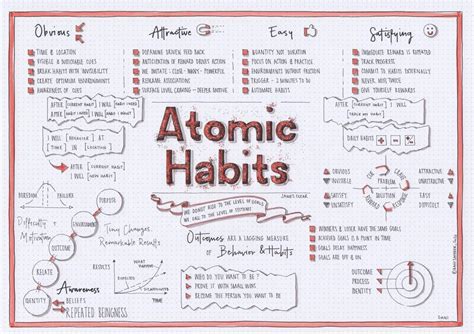 Obvious
TIME & LOCATION
VISIBLE & NOTICABLE CUES
BREAK HABITS WITH INVISIBILITY
CREATE OPTIMUM ENVIRONMENTS
AWARENESS OF CUES
Attractive
DOPAMINE DRIVEN FEED BACK
ANTICIPATION OF REWARD DRIVES ACTION
WE IMITATE: CLOSE - MANY - POWERFUL
REFRAME ASSOCIATIONS
SURFACE LEVEL CRAVING - DEEPER MOTIVE
Easy
QUANTITY NOT DURATION
FOCUS ON ACTION & PRACTICE
ENVIRONMENTS WITHOUT FRICTION
TRIGGER - 2 MINUTES TO DO
AUTOMATE HABITS
Satisfying
IMMEDIATE REWARD IS REPEATED
TRACK PROGRESS
COMMIT TO HABITS EXTERNALLY
NEVER MISS TWICE
GIVE YOURSELF REWARDS
AFTER [CURRENT HABIT] I WILL [NEW HABIT]
AFTER [CURRENT HABIT] I WILL [NEED]
I WILL [BEHAVIOR] AT
[TIME] IN [LOCATION]
AFTER [CURRENT HABIT]
I WILL [NEW HABIT]
Atomic
Habits
JAMES CLEAR
WE DO NOT RISE TO THE LEVEL OF GOALS
WE FALL TO THE LEVEL OF SYSTEMS
AFTER [CURRENT HABIT]
I WILL [REWARD]
DAILY HABITS
OBVIOUS
INVISIBLE
SATISFY
UNSATISFY
CUE
CRAVE
RESPONSE
REWARD
Problem
Solution
ATTRACTIVE
UNATTRACTIVE
EASY
DIFFICULT
BOREDOM
FAILURE
Difficulty
Motivation
PURPOSE
ENVIRONMENT
OUTCOME
RELATE
IDENTITY
Tiny Changes,
Remarkable Results
Awareness
BELIEFS
REPEATED BEINGNESS
Outcomes ARE A LAGGING MEASURE
OF Behavior & Habits
WHO DO YOU WANT TO BE?
PROVE IT WITH SMALL WINS
BECOME THE PERSON YOU WANT TO BE
WINNERS & LOSERS HAVE THE SAME GOALS
ACHIEVED GOALS IS A POINT IN TIME
GOALS DELAY HAPPINESS
GOALS ARE OFF & ON
OUTCOME
PROCESS
IDENTITY